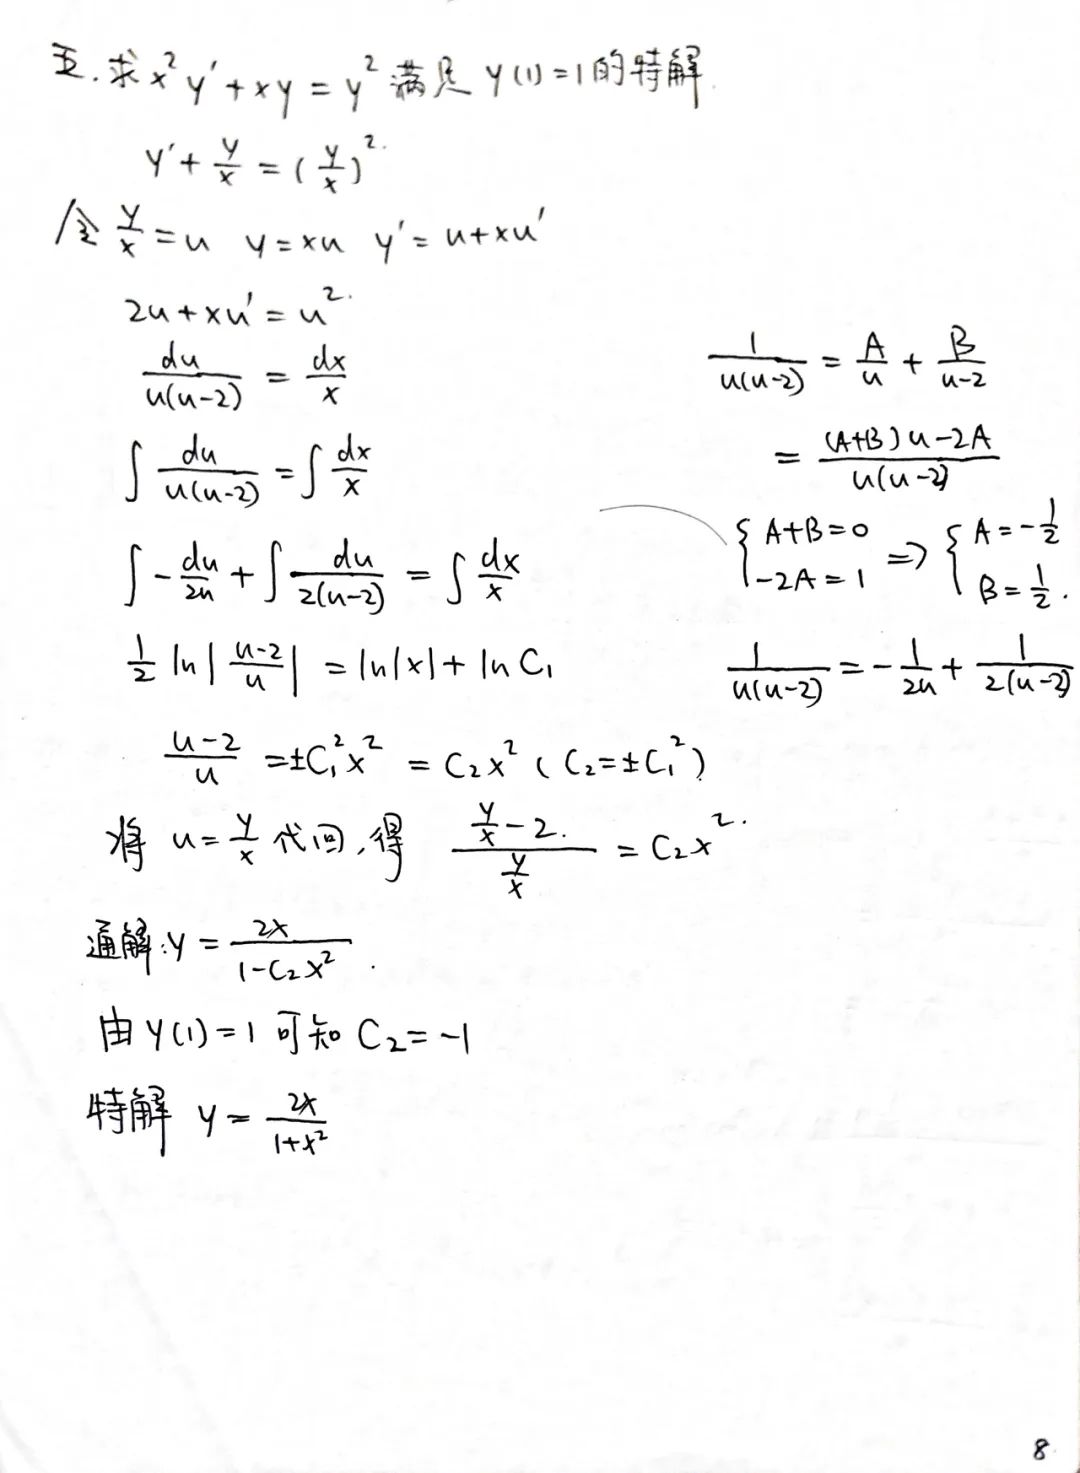 五.求x²y′+xy=y²满足y(1)=1的特解.
y′+y/x=(y/x)².
令y/x=u y=xu y′=u+xu′
2u+xu′=u².
du/(u(u-2)) = dx/x
∫du/(u(u-2)) = ∫dx/x
∫-du/2u+∫du/(2(u-2)) = ∫dx/x
½ ln|(u-2)/u| = ln|x|+ln C₁
(u-2)/u =±C₁²x² = C₂x² (C₂=±C₁²)
将 u=y/x 代回,得 (y/x-2.)/(y/x) = C₂x².
通解:y=2x/(1-C₂x²).
由y(1)=1可知C₂=-1
特解 y=2x/(1+x²)
1/(u(u-2)) = A/u + B/(u-2)
= ((A+B)u-2A)/(u(u-2))
{A+B=0 -2A=1 => {A=-½ B=½.
1/(u(u-2)) =-1/2u+1/(2(u-2))
8